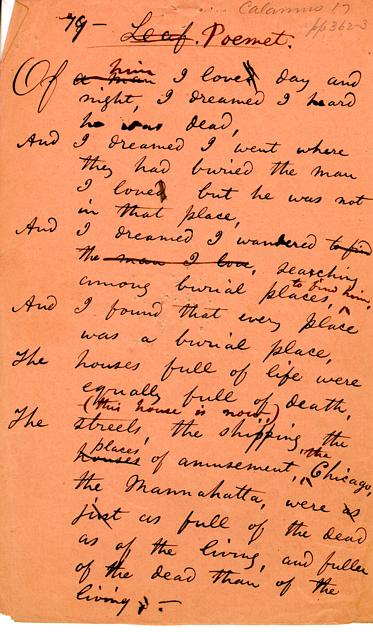 Calamus 17
pp 362-3
79— Leaf. Poemet.
him
Of a man I loved day and
night, I dreamed I heard
he was dead,
And I dreamed I went where
they had buried the man
I loved but he was not
in that place,
And I dreamed I wandered to find
the man I love, searching
to find him,
among burial places,
And I found that every place
was a burial place,
The houses full of life were
equally full of death,
(this house is now)
The streets, the shipping, the
places the
houses of amusement, Chicago,
the Mannahatta, were as
just as full of the dead
as of the living, and fuller
of the dead than of the
living; —